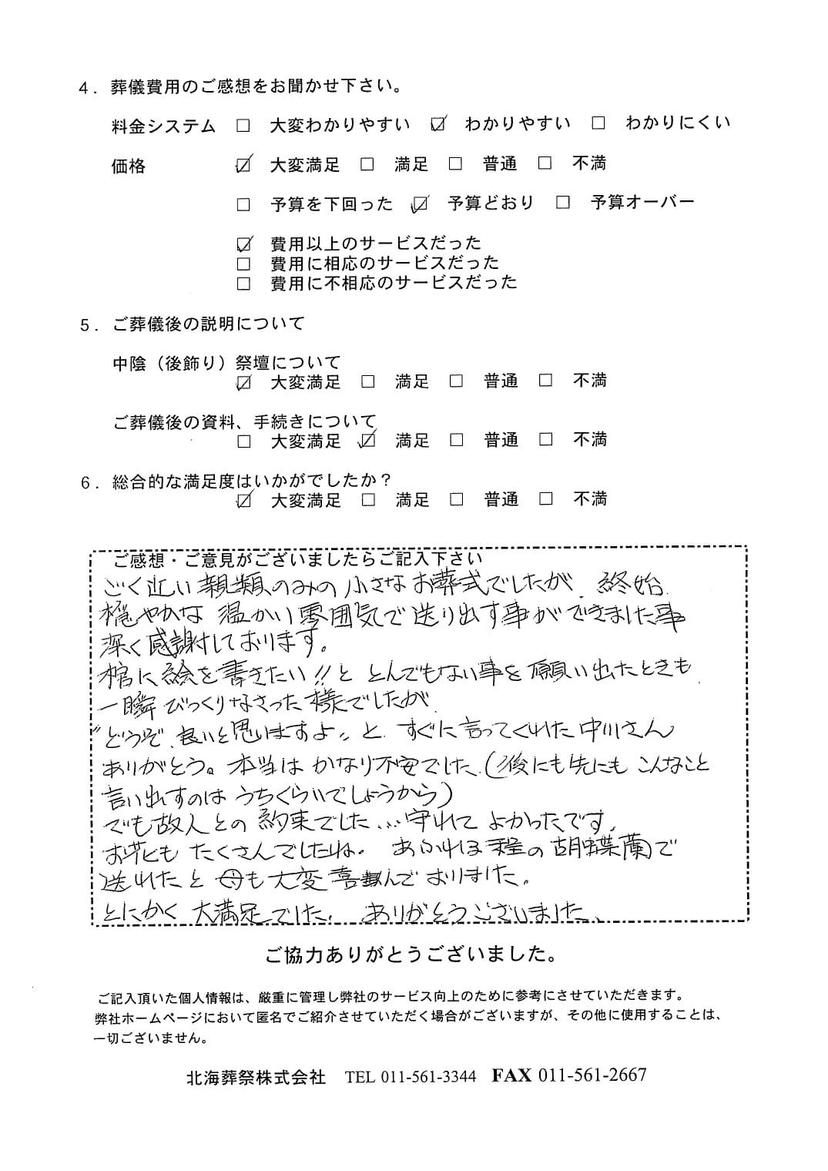 4．葬儀費用のご感想をお聞かせ下さい。
料金システム □ 大変わかりやすい ☑ わかりやすい □ わかりにくい
価格 ☑ 大変満足 □ 満足 □ 普通 □ 不満
□ 予算を下回った ☑ 予算どおり □ 予算オーバー
☑ 費用以上のサービスだった
□ 費用に相応のサービスだった
□ 費用に不相応のサービスだった
5．ご葬儀後の説明について
中陰（後飾り）祭壇について
☑ 大変満足 □ 満足 □ 普通 □ 不満
ご葬儀後の資料、手続きについて
□ 大変満足 ☑ 満足 □ 普通 □ 不満
6．総合的な満足度はいかがでしたか？
☑ 大変満足 □ 満足 □ 普通 □ 不満
ご感想・ご意見がございましたらご記入下さい
ごく近い親類のみの小さなお葬式でしたが、終始
穏やかな温かい雰囲気で送り出す事ができました事
深く感謝しております。
棺に絵を書きたい!!と とんでもない事を願い出たときも
一瞬びっくりなさった様でしたが
"どうぞ、良いと思いますよ〟と すぐに言ってくれた中川さん
ありがとう。本当はかなり不安でした（後にも先にもこんなこと
言い出すのはうちぐらいでしょうから）
でも故人との約束でした…守れてよかったです。
お花もたくさんでしたね。あふれる程の胡蝶蘭で
送れたと母も大変喜んでおりました。
とにかく大満足でした。ありがとうございました。
ご協力ありがとうございました。
ご記入頂いた個人情報は、厳重に管理し弊社のサービス向上のために参考にさせていただきます。
弊社ホームページにおいて匿名でご紹介させていただく場合がございますが、その他に使用することは、
一切ございません。
北海葬祭株式会社 TEL 011-561-3344 FAX 011-561-2667